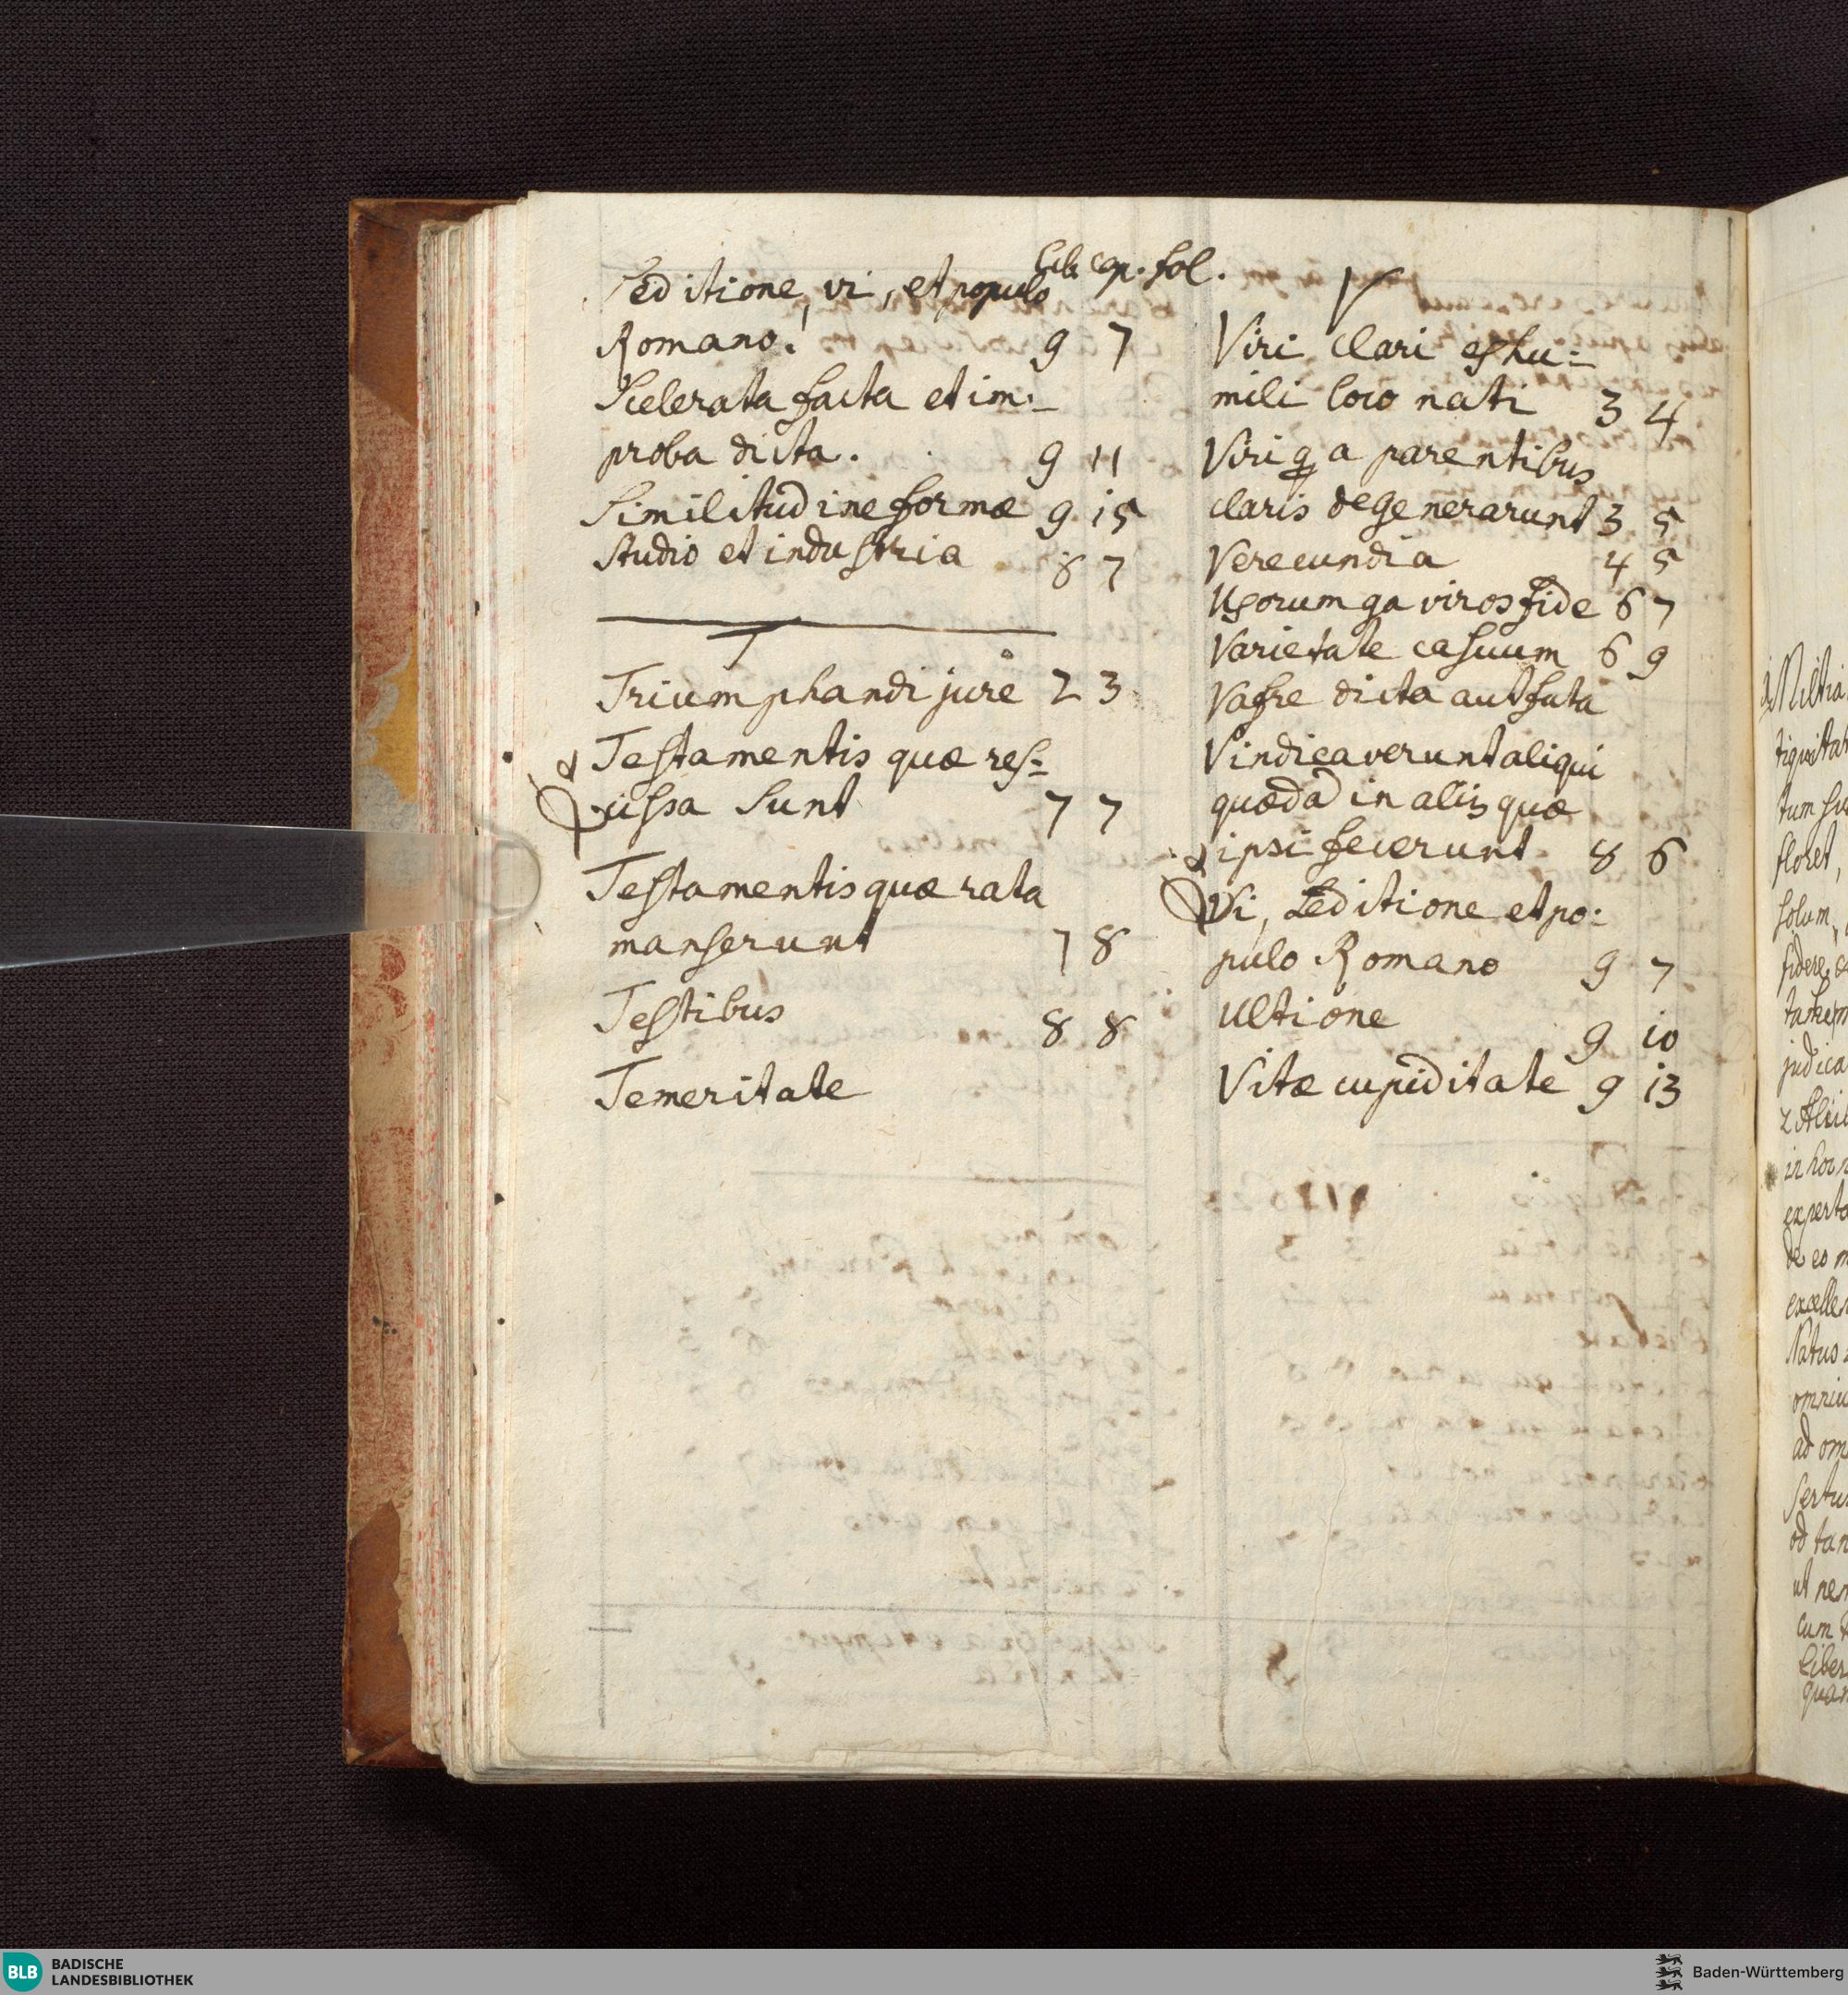 Lib. cap. fol.
Seditione, vi, et populo
Romano. 9 7
Scelerata facta et im:
proba dicta. 9 11
Similitudine formæ 9 15
Studio et industria 8 7
T
Triumphandi jure 2 3
Testamentis quæ res:
cissa sunt 7 7
Testamentis quæ rata
manserunt 7 8
Testibus 8 8
Temeritate
V
Viri clari ex hu:
mili loco nati 3 4
Viri q a parentibus
claris degenerarunt 3 5
Verecundia 4 5
Uxorum ga viros fide 6 7
Varietate casuum 6 9
Vafre dicta aut facta
Vindicaverunt aliqui
quædā in aliis quæ
ipsi fecerunt 8 6
Vi, Seditione et po:
pulo Romano 9 7
Ultione 9 10
Vitæ cupiditate 9 13
tum
floret,
solum,
judica
in hoc
de eo
Natus
ad om
cum
BLB BADISCHE
LANDESBIBLIOTHEK
Baden-Württemberg